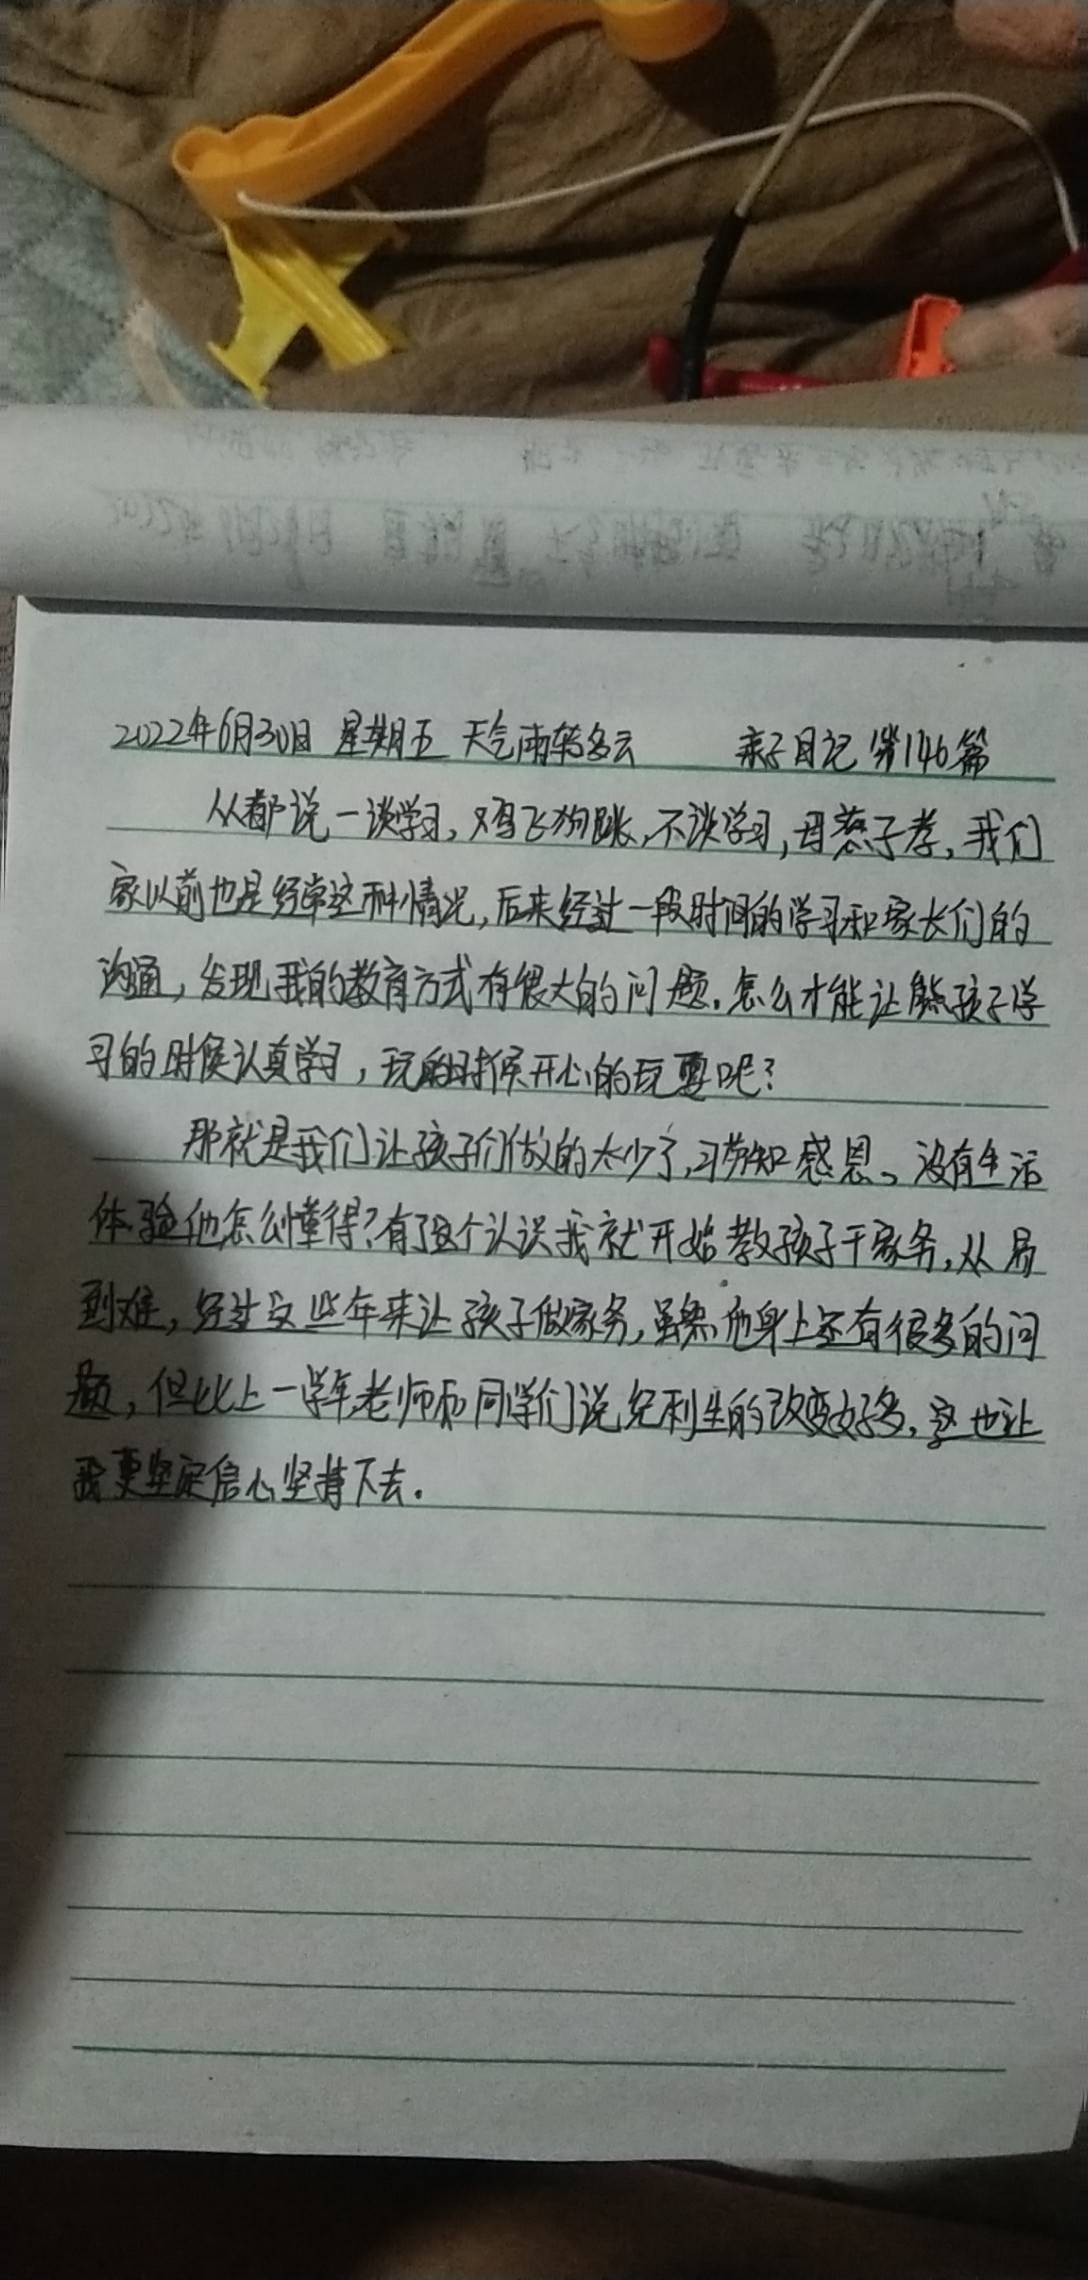 2022年6月30日 星期五 天气雨转多云 亲子日记 第146篇
人都说一谈学习，鸡飞狗跳，不谈学习，母慈子孝，我们
家以前也是经常这种情况，后来经过一段时间的学习和家长们的
沟通，发现我的教育方式有很大的问题。怎么才能让熊孩子学
习的时候认真学习，玩的时候开心的玩耍呢？
那就是我们让孩子们做的太少了，不知感恩。没有生活
体验他怎么懂得？有了这个认识我就开始教孩子干家务，从易
到难，经过这些年来让孩子做家务，虽然他身上还有很多的问
题，但比上一学年老师和同学们说纪利生的改变好多，这也让
我更坚定信心坚持下去。